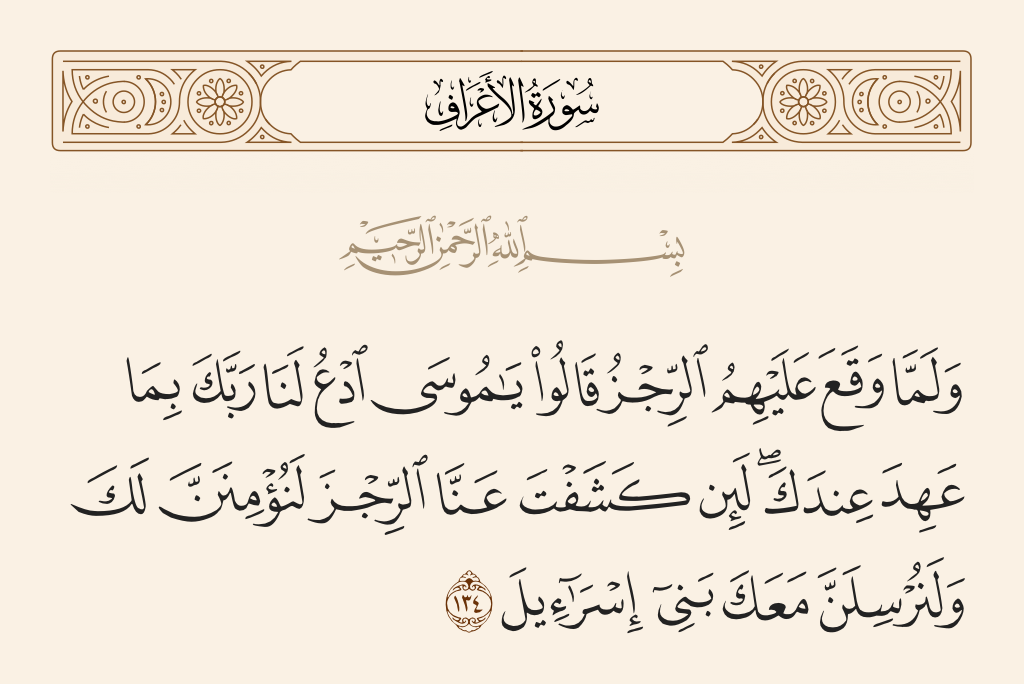 سُورَةُ الأَعْرَافِ
بِسْمِ ٱللَّهِ ٱلرَّحْمَٰنِ ٱلرَّحِيمِ
وَلَمَّا وَقَعَ عَلَيْهِمُ ٱلرِّجْزُ قَالُوا۟ يَـٰمُوسَى ٱدْعُ لَنَا رَبَّكَ بِمَا
عَهِدَ عِندَكَ ۖ لَئِن كَشَفْتَ عَنَّا ٱلرِّجْزَ لَنُؤْمِنَنَّ لَكَ
وَلَنُرْسِلَنَّ مَعَكَ بَنِىٓ إِسْرَٰٓءِيلَ ١٣٤